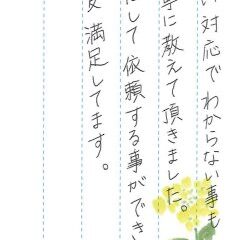 い対応でわからない事も
寧に教えて頂きました。
して依頼する事ができ
満足してます。